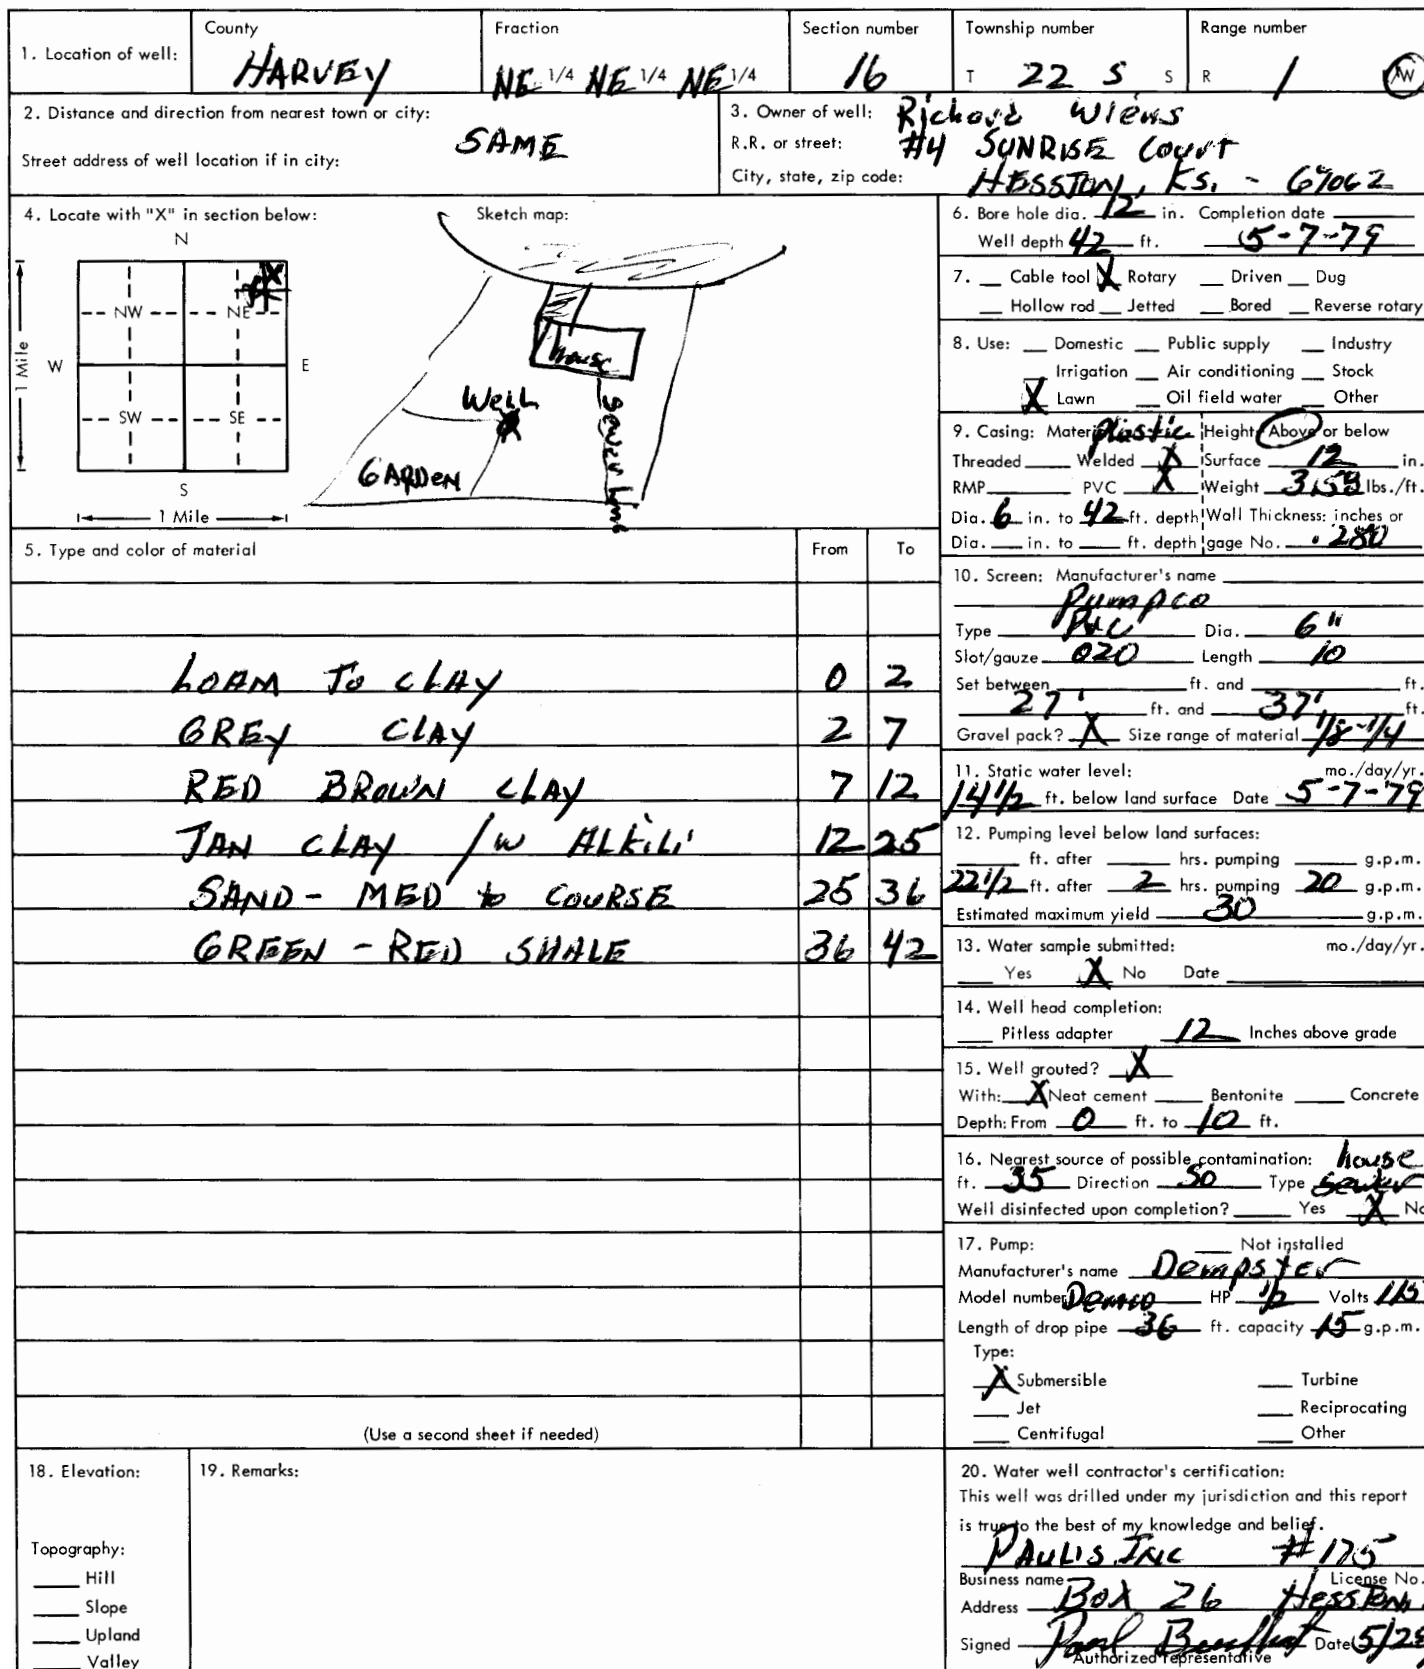 1. Location of well: County HARVEY Fraction NE 1/4 NE 1/4 NE 1/4 Section number 16 Township number T 22 S S Range number R 1 W
2. Distance and direction from nearest town or city: SAME
Street address of well location if in city:
3. Owner of well: Richard Wiens
R.R. or street: #4 SUNRISE Court
City, state, zip code: HESSTON, KS. - 67062
4. Locate with "X" in section below:
N
NW NE
W E
SW SE
S
1 Mile
1 Mile
X
Sketch map:
house
Well
GARDEN
Sewer line
5. Type and color of material From To
LOAM TO CLAY 0 2
GREY CLAY 2 7
RED BROWN CLAY 7 12
TAN CLAY /w ALKILI 12 25
SAND - MED to COURSE 25 36
GREEN - RED SHALE 36 42
(Use a second sheet if needed)
6. Bore hole dia. 12 in. Completion date
Well depth 42 ft. 5-7-79
7. Cable tool X Rotary Driven Dug
Hollow rod Jetted Bored Reverse rotary
8. Use: Domestic Public supply Industry
Irrigation Air conditioning Stock
X Lawn Oil field water Other
9. Casing: Material plastic Height: Above or below
Threaded Welded X Surface 12 in.
RMP PVC X Weight lbs./ft.
Dia. 6 in. to 42 ft. depth Wall Thickness: inches or
Dia. in. to ft. depth gage No. .280
10. Screen: Manufacturer's name
Pumpco
Type PVC Dia. 6"
Slot/gauze 020 Length 10
Set between ft. and ft.
27' ft. and 37' ft.
Gravel pack? X Size range of material 1/8-1/4
11. Static water level: mo./day/yr.
14 1/2 ft. below land surface Date 5-7-79
12. Pumping level below land surfaces:
ft. after hrs. pumping g.p.m.
22 1/2 ft. after 2 hrs. pumping 20 g.p.m.
Estimated maximum yield 30 g.p.m.
13. Water sample submitted: mo./day/yr.
Yes X No Date
14. Well head completion:
Pitless adapter 12 Inches above grade
15. Well grouted? X
With: X Neat cement Bentonite Concrete
Depth: From 0 ft. to 10 ft.
16. Nearest source of possible contamination: house
ft. 35 Direction SO Type sewer
Well disinfected upon completion? Yes X No
17. Pump: Not installed
Manufacturer's name Dempster
Model number Demco HP 1/2 Volts 115
Length of drop pipe 36 ft. capacity 15 g.p.m.
Type:
X Submersible Turbine
Jet Reciprocating
Centrifugal Other
18. Elevation:
Topography:
Hill
Slope
Upland
Valley
19. Remarks:
20. Water well contractor's certification:
This well was drilled under my jurisdiction and this report
is true to the best of my knowledge and belief.
PAULS INC #175
Business name License No.
Address Box 26 Hesston
Signed Paul Date 5/28
Authorized representative